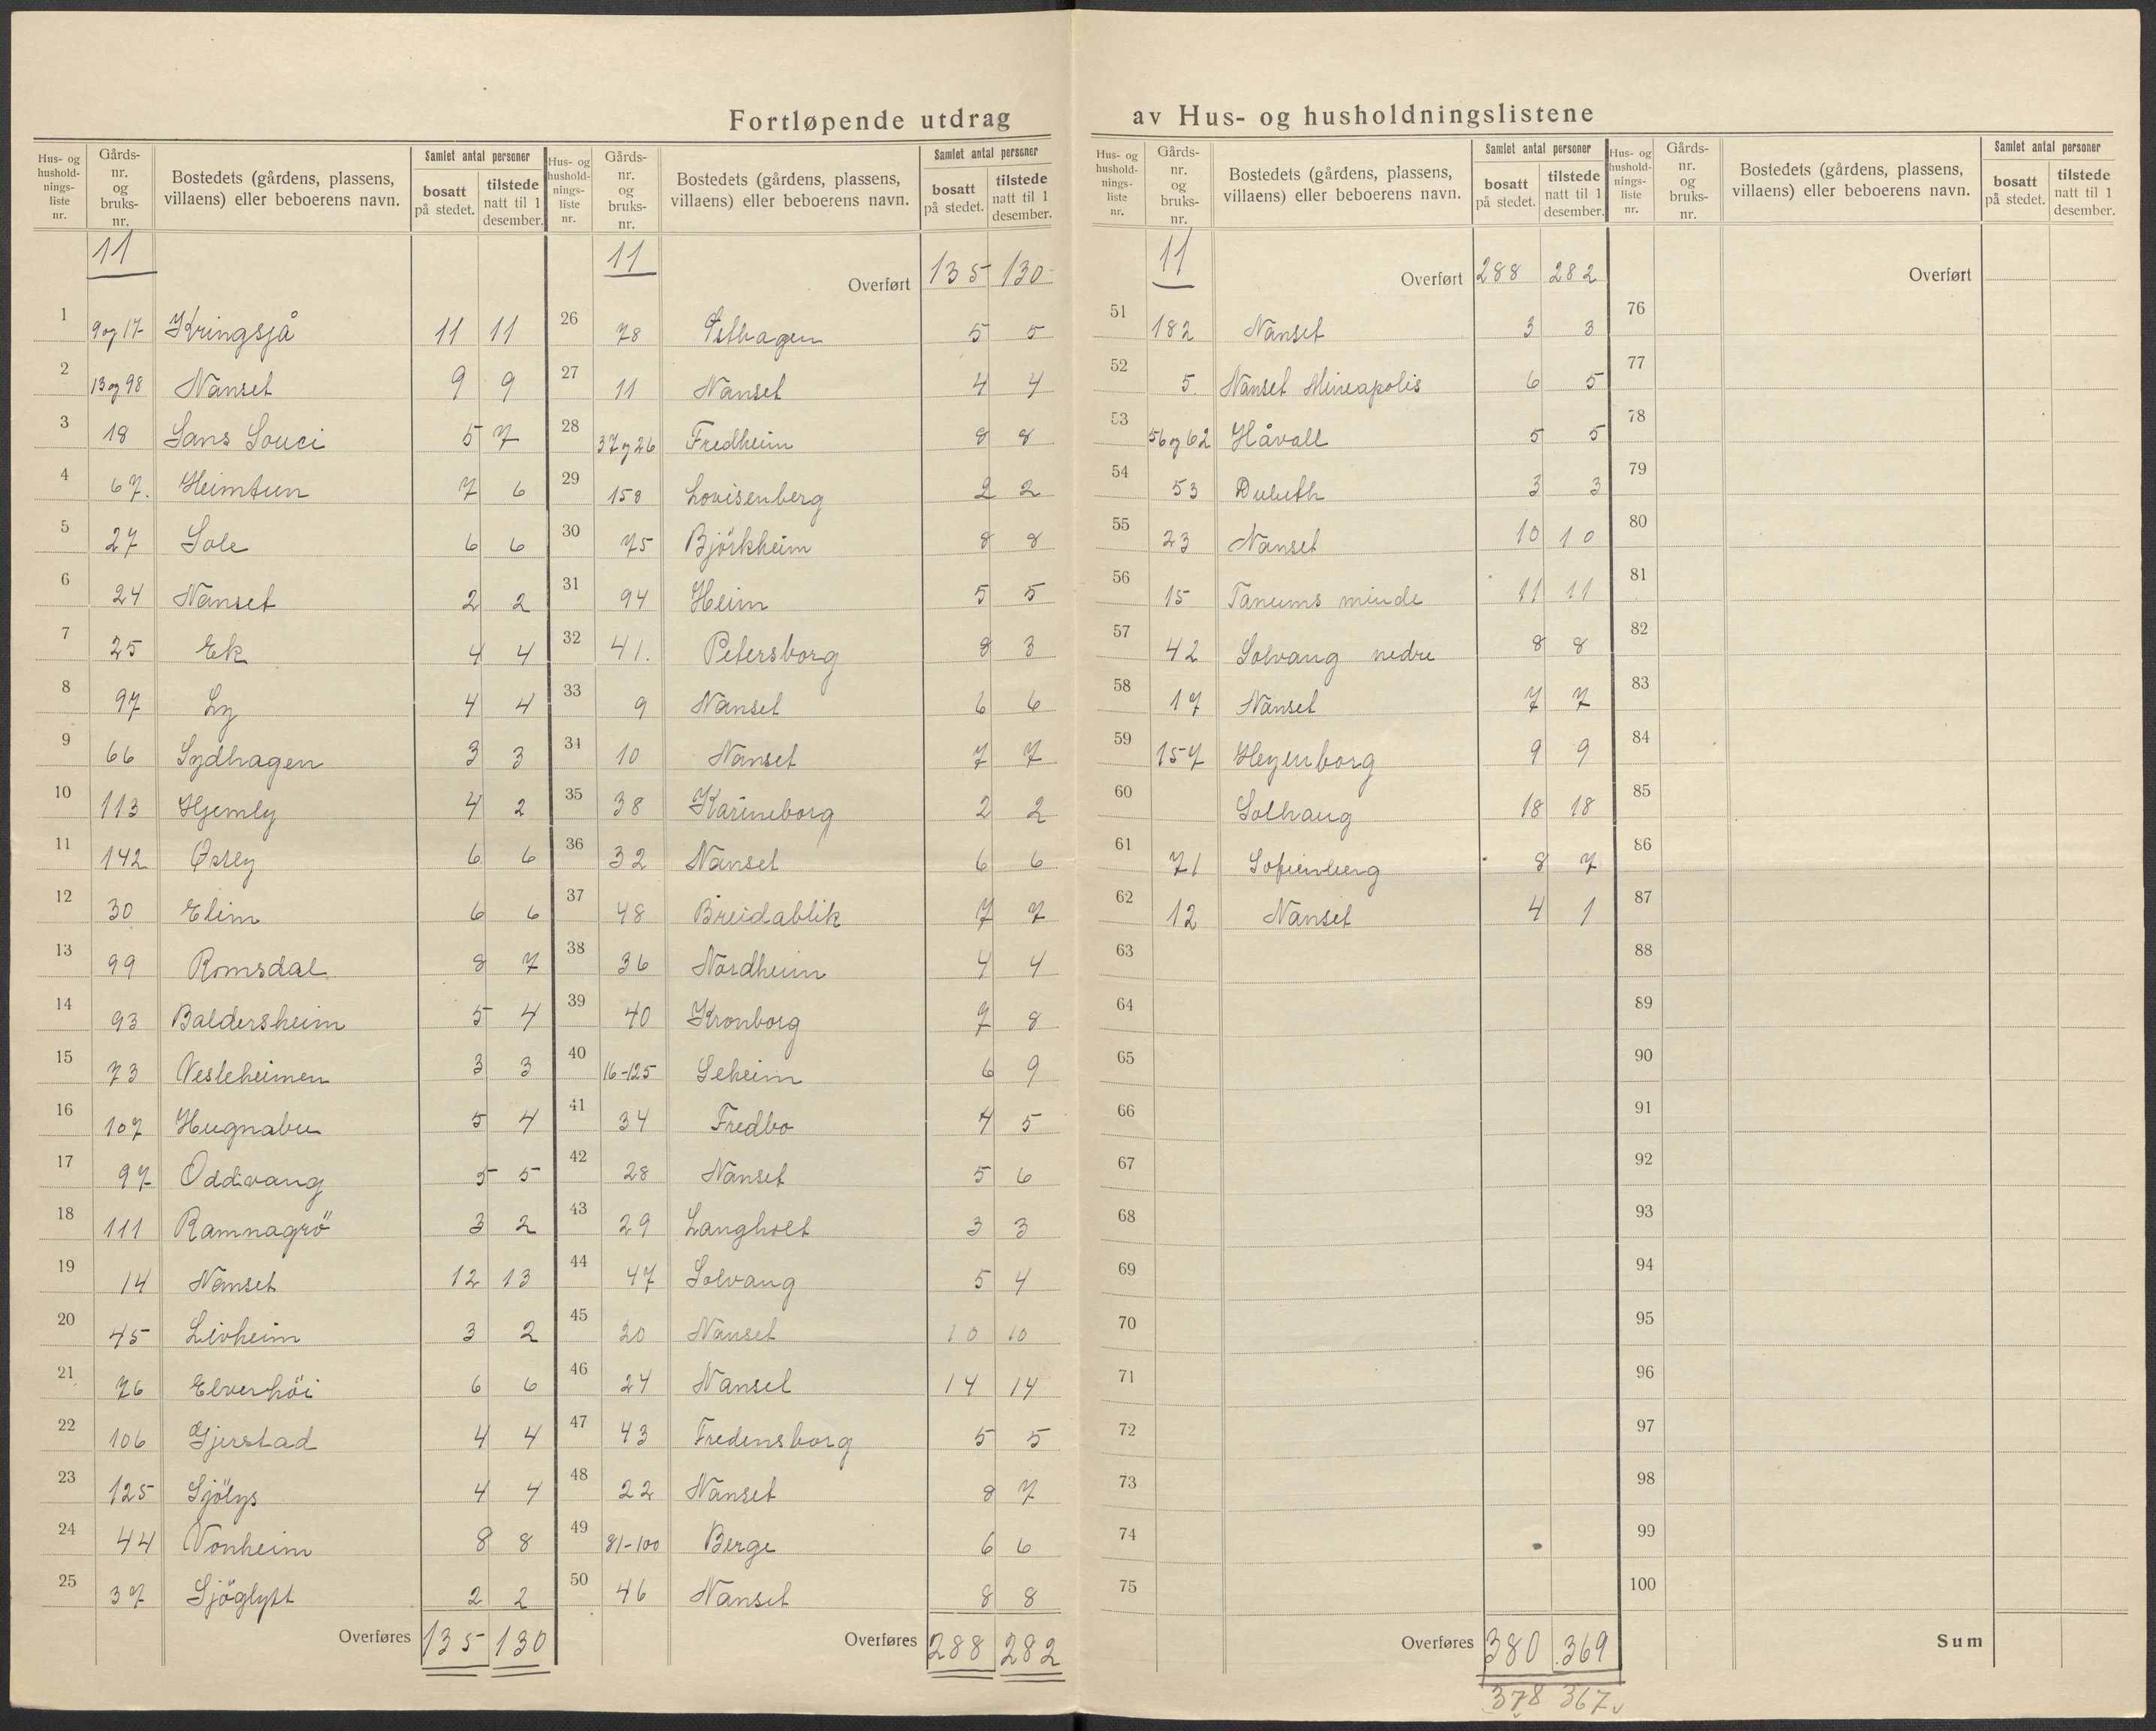 Fortløpende utdrag av Hus- og husholdningslistene
Hus- og hushold-nings-liste nr. | Gårds-nr. og bruks-nr. | Bostedets (gårdens, plassens, villaens) eller beboerens navn. | Samlet antal personer | bosatt på stedet. | tilstede natt til 1 desember.
11
1 9 og 17 Kringsjå 11 11
2 13 og 98 Nanset 9 9
3 18 Sans Souci 5 7
4 67. Heimtun 7 6
5 27 Sole 6 6
6 24 Nanset 2 2
7 25 Ek 4 4
8 97 Ly 4 4
9 66 Sydhagen 3 3
10 113 Hjemly 4 2
11 142 6 6
12 30 Elim 6 6
13 99 Romsdal 8 7
14 93 Baldersheim 5 4
15 73 Vesleheimen 3 3
16 107 Hugnabu 5 4
17 97 Oddivang 5 5
18 111 Ramnagrö 3 2
19 14 Nanset 12 13
20 45 Livheim 3 2
21 76 Elverhöi 6 6
22 106 Gjerstad 4 4
23 125 Sjölys 4 4
24 44 Vonheim 8 8
25 37 Sjöglytt 2 2
Overføres 135 130
Hus- og hushold-nings-liste nr. | Gårds-nr. og bruks-nr. | Bostedets (gårdens, plassens, villaens) eller beboerens navn. | Samlet antal personer | bosatt på stedet. | tilstede natt til 1 desember.
11 Overført 135 130
26 78 5 5
27 11 Nanset 4 4
28 37 og 26 Fredheim 8 8
29 158 Lovisenberg 2 2
30 75 Björkheim 8 8
31 94 Heim 5 5
32 41. Petersborg 8 3
33 9 Nanset 6 6
34 10 Nanset 7 7
35 38 Karineborg 2 2
36 32 Nanset 6 6
37 48 Breidablik 7 7
38 36 Nordheim 4 4
39 40 Kronborg 8
40 16-125 Seheim 6 9
41 34 Fredbo 4 5
42 28 Nanset 5 6
43 29 Langholt 3 3
44 47 Solvang 5 4
45 20 Nanset 10 10
46 24 Nanset 14 14
47 43 Fredensborg 5 5
48 22 Nanset 8 7
49 81-100 Berge 6 6
50 46 Nanset 8 8
Overføres 288 282
Hus- og hushold-nings-liste nr. | Gårds-nr. og bruks-nr. | Bostedets (gårdens, plassens, villaens) eller beboerens navn. | Samlet antal personer | bosatt på stedet. | tilstede natt til 1 desember.
11 Overført 288 282
51 182 Nanset 3 3
52 5. Nanset Mineapolis 6 5
53 56 og 62 Håvall 5 5
54 53 Duluth 3 3
55 23 Nanset 10 10
56 15 Tanums minde 11 11
57 42 Solvang nedre 8 8
58 17 Nanset 7 7
59 157 Heyenborg 9 9
60 Solhaug 18 18
61 71 Sofienberg 8 7
62 12 Nanset 4 1
63
64
65
66
67
68
69
70
71
72
73
74
75
Overføres 380 369
378 367
Hus- og hushold-nings-liste nr. | Gårds-nr. og bruks-nr. | Bostedets (gårdens, plassens, villaens) eller beboerens navn. | Samlet antal personer | bosatt på stedet. | tilstede natt til 1 desember.
Overført
76
77
78
79
80
81
82
83
84
85
86
87
88
89
90
91
92
93
94
95
96
97
98
99
100
Sum